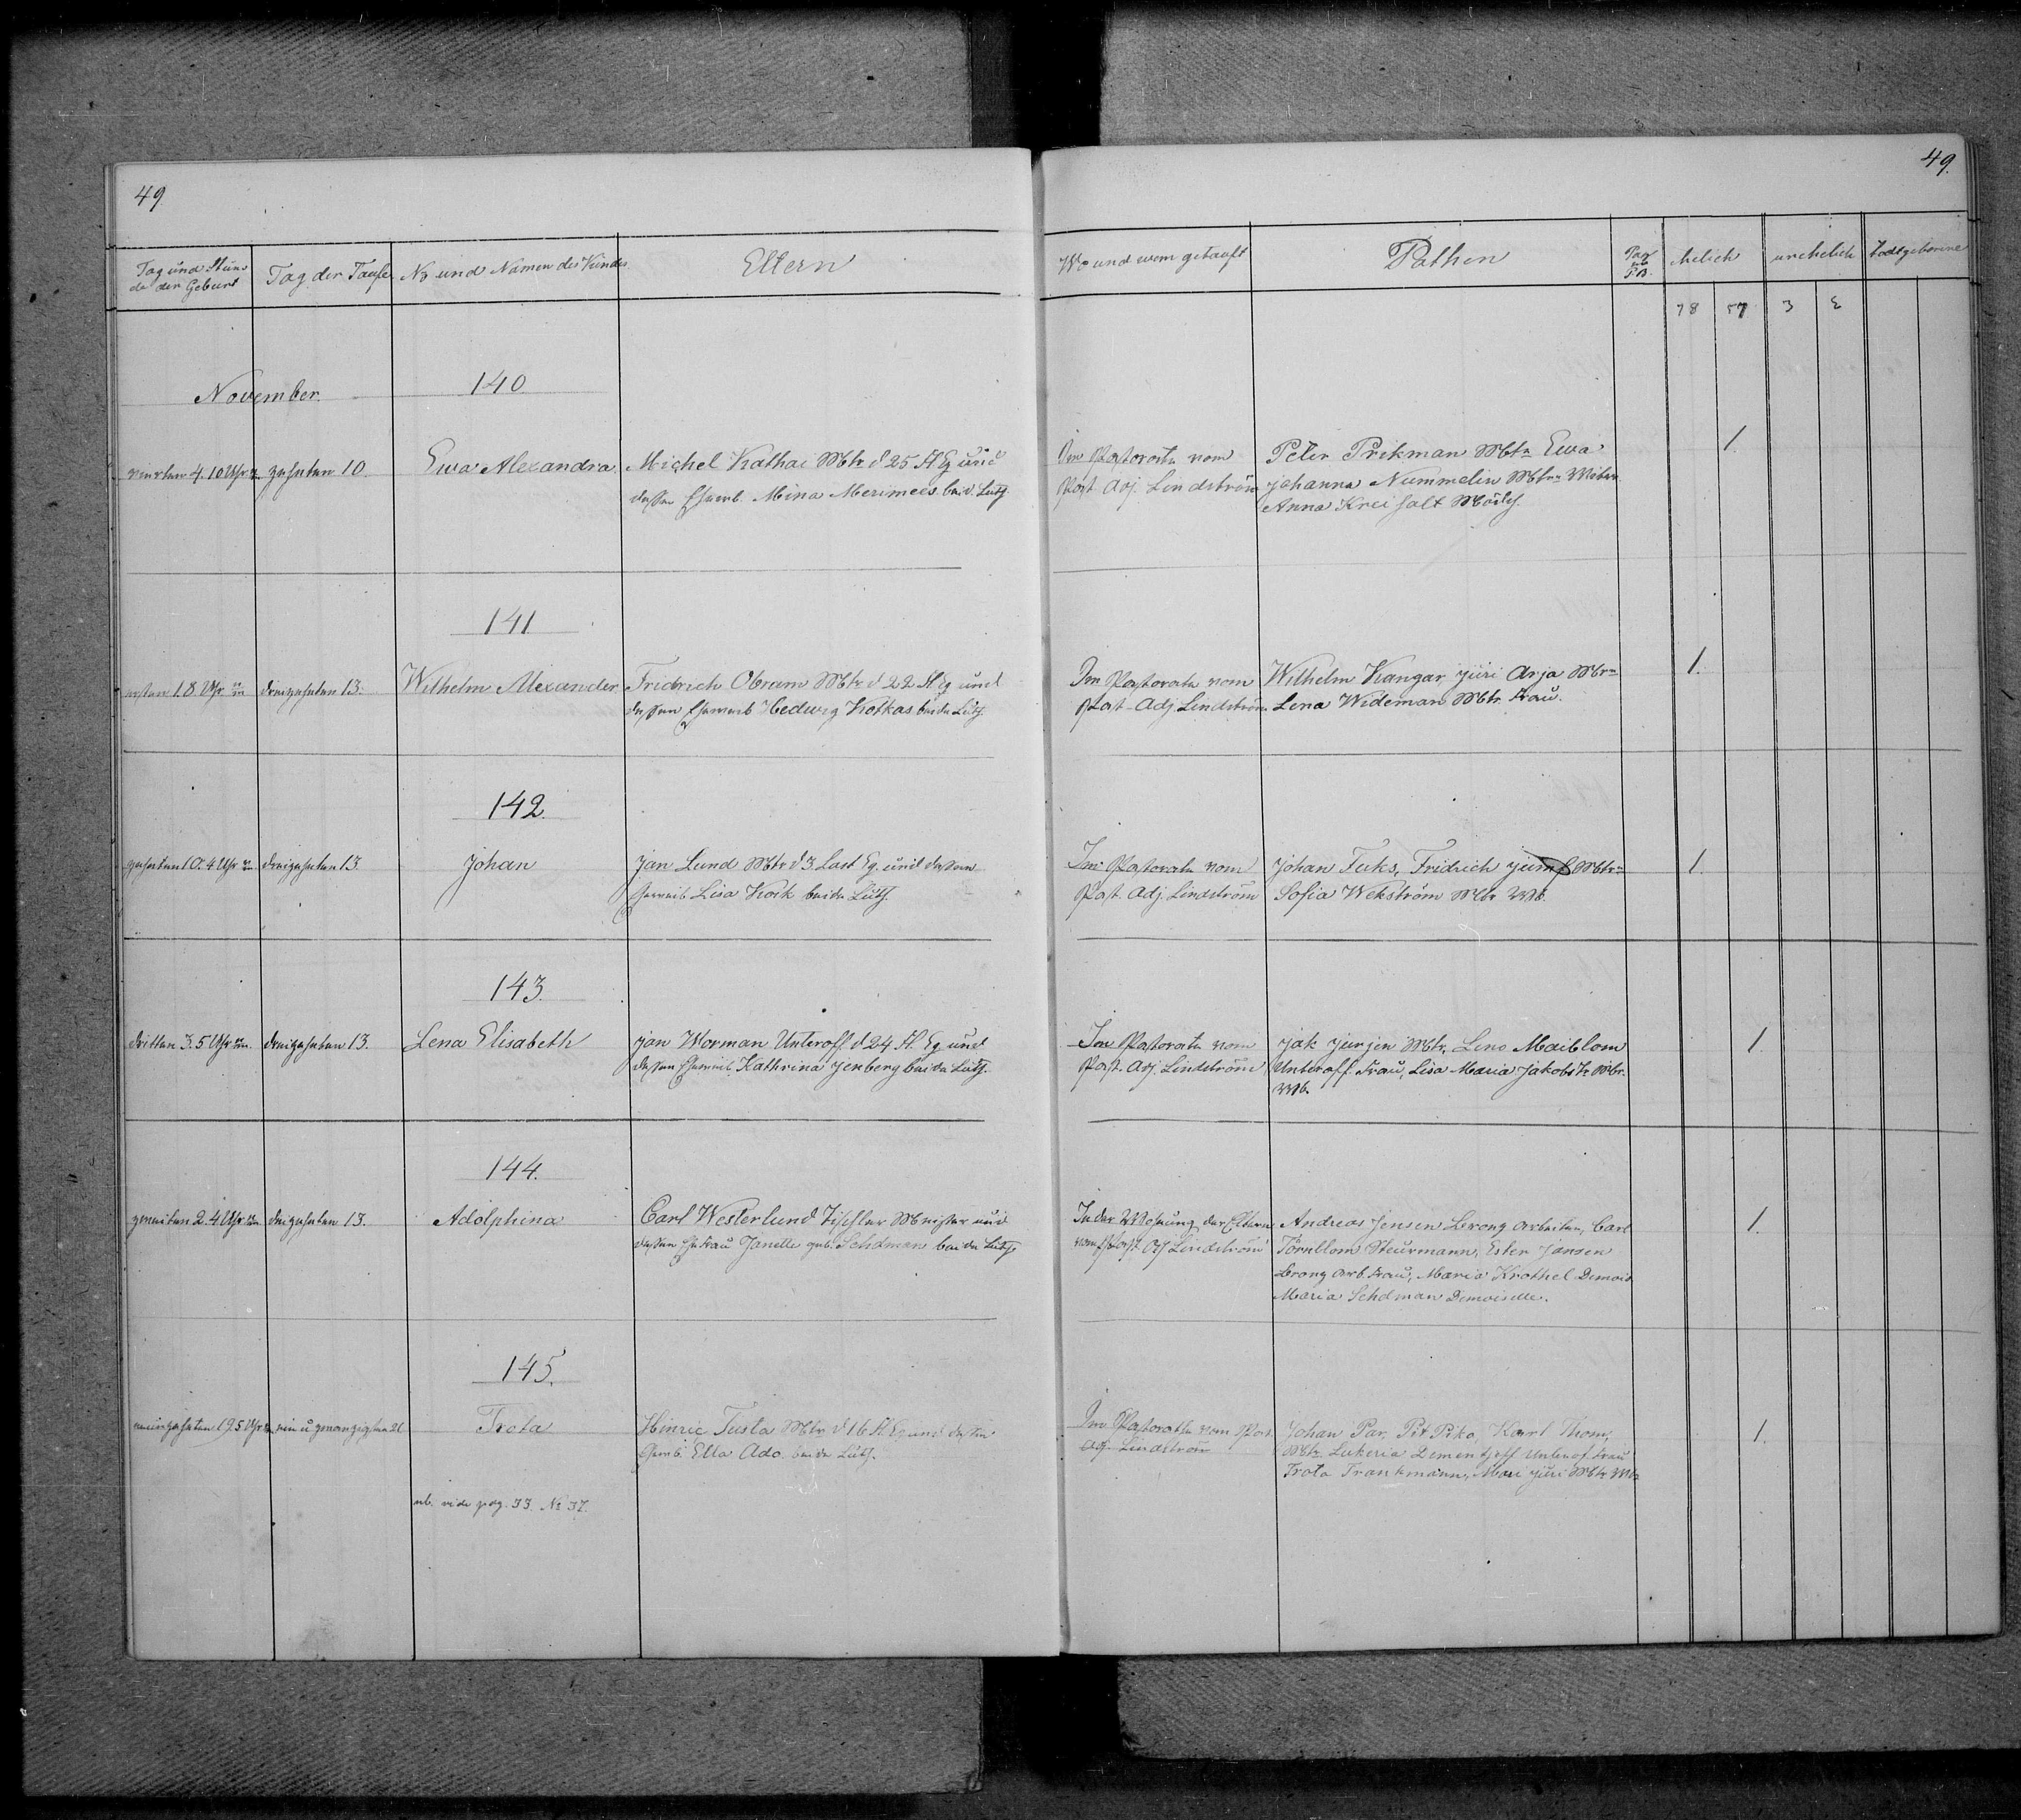 49
49.
Tag und Stun-
de der Geburt
Tag der Taufe
No und Namen des Kindes
Eltern
Wo und wem getauft
Pathen
Pag
PB.
ehelich
unehelich
Todtgeborene
78 57 3 ε
November.
140.
vierten 4. 10 Uhr
zehnten 10.
Ewa Alexandra
Michel Kathai Mtr d 25 Fl Eq und
dessen Eheweib Mina Merimees beide Luth.
Im Pastorate vom
Past. Adj. Lindström
Peter Prikman Mtr Ewa
Johanna Nummelin Mtrn
Anna Kreisalt
1
141
ersten 1. 8 Uhr
dreizehnten 13.
Wilhelm Alexander
Fridrich Obram Mtr d 22 Fl Eq und
dessen Eheweib Hedwig Kotkas beide Luth.
Im Pastorate vom
Past. Adj. Lindström
Wilhelm Kangar Jüri Arja Mtrn
Lena Wideman Mtr. Frau.
1.
142.
zehnten 10. 4 Uhr
dreizehnten 13.
Johan
Jan Lund Mtr d 3 Last Eq. und dessen
Eheweib Lisa Kork beide Luth.
Im Pastorate vom
Past. Adj. Lindström
Johan Tuks, Fridrich Mtrn
Sofia Wekström Mtr Wb.
1.
143.
dritten 3. 5 Uhr
dreizehnten 13.
Lena Elisabeth
Jan Worman Unteroff d 24 Fl. Eq und
dessen Eheweib Kathrina Jenberg beide Luth.
Im Pastorate vom
Past. Adj. Lindström
Jak Jurjen Mtr, Leno Maiblom
Unteroff. Frau, Lisa Maria Jakobs Mtr.
Wb.
1.
144.
zweiten 2. 4 Uhr
dreizehnten 13.
Adolphina
Carl Westerlund Tischler Meister und
dessen Ehefrau Janette geb. Sehdman beide Luth.
In der Wohnung der Eltern
vom Past. Adj Lindström
Andreas Jensen Arbeiter, Carl
Törnblom Steurmann, Ester Jansen
Arb. Frau, Maria Krothel Demois
Maria Sehdman Demoiselle.
1.
145.
neunzehnten 19. 5 Uhr
ein u zwanzigsten 21
Trota
Hinric Tusla Mtr d 16 Fl. Eq und dessen
Eheweib Ella Ado beide Luth.
Im Pastorate vom Past
Adj. Lindström
Johan Par, Pit Piko, Karl Thom,
Mtr Lukeria Dementjeff Unterof. Frau
Trota Trankmann, Mari Jüri Mtr Wb
1.
nb. vide pag. 33. No 37.